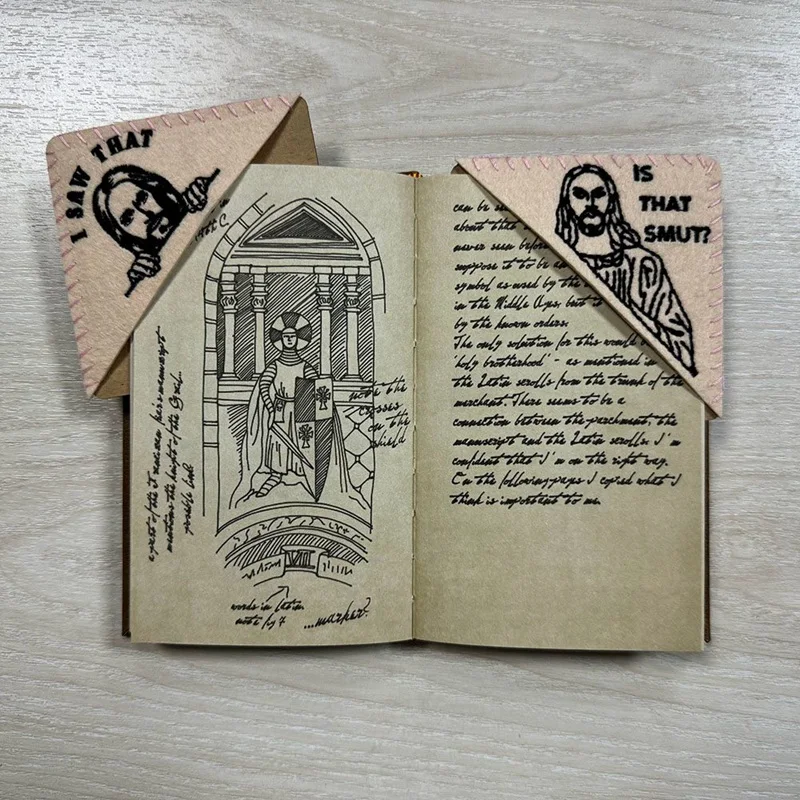 I SAW THAT
IS
THAT
SMUT?
note the
crosses
on the
shield
VIII
words in Latin
...marker?
can be
about that
never seen before
suppose it to be an
symbol as used by the
in the Middle Ages, but
by the known orders.
The only solution for this would
'holy brotherhood' - as mentioned in
the Latin scrolls from the trunk of the
merchant. There seems to be a
connection between the parchment, the
manuscript and the Latin scrolls. I'm
confident that I'm on the right way.
On the following pages I copied what I
think is important to me.